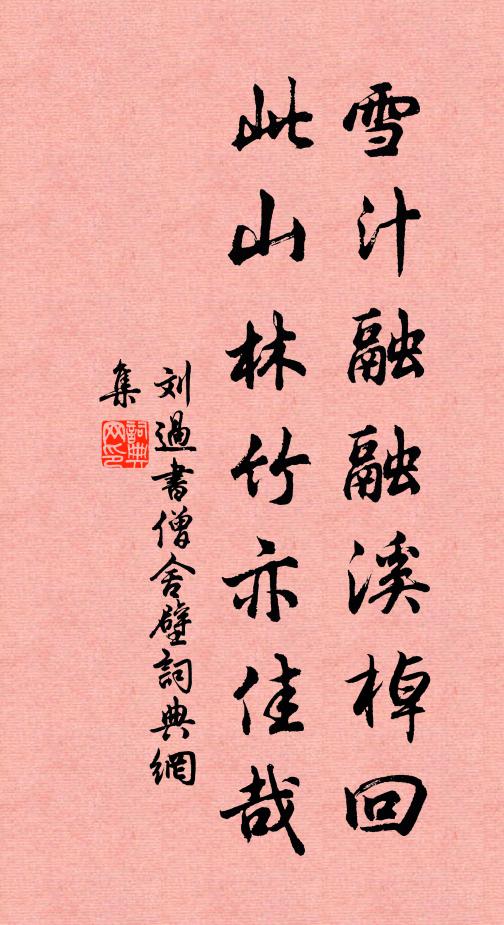 雪汁融融溪棹回
此山林竹亦佳哉
刘過書僧舍壁詞典網
集
詞典
网印